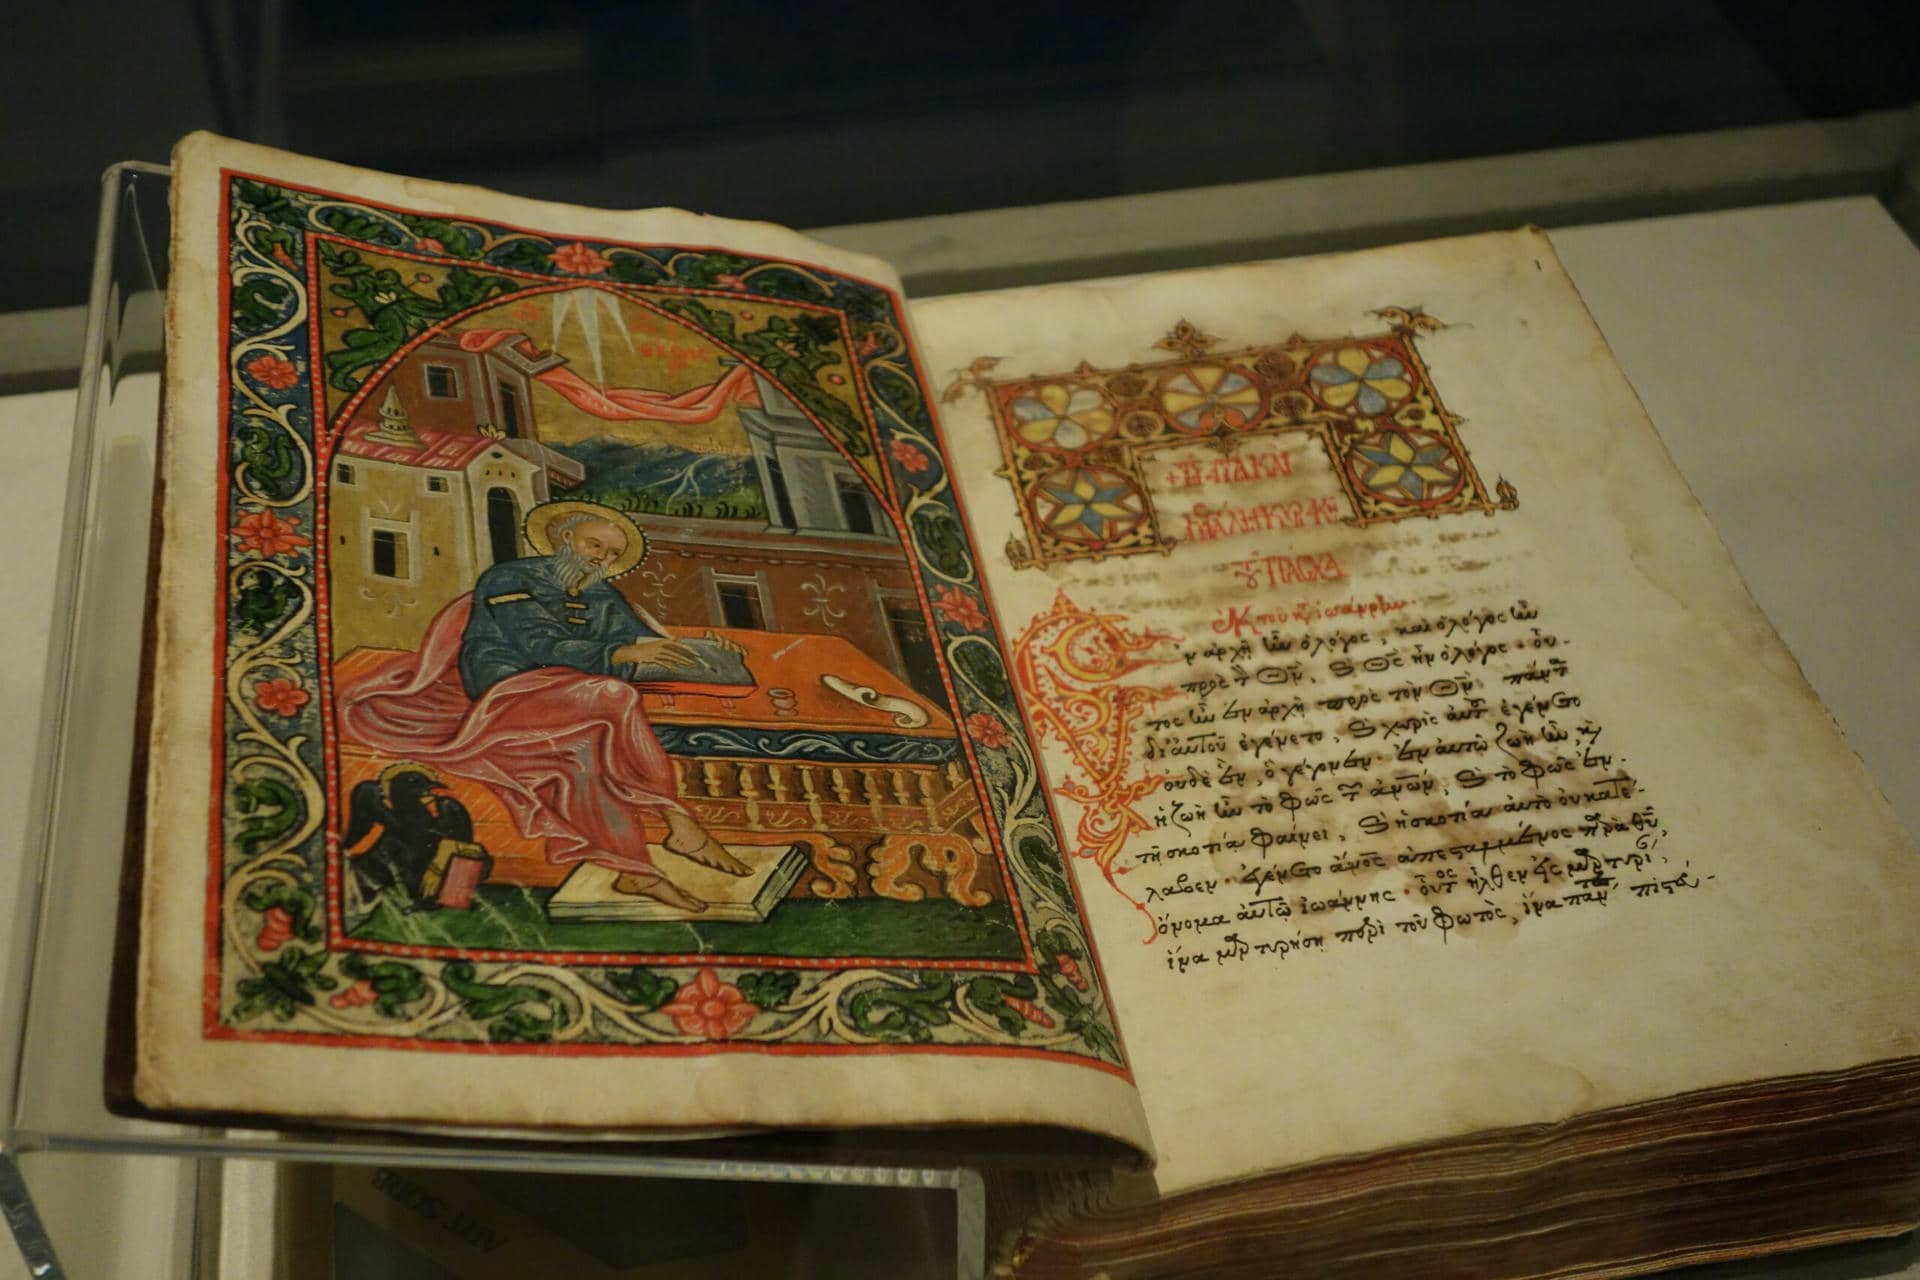 +ΤΗ ΑΓΙΑ ΚΑΙ
ΜΕΓΑΛΗ ΚΥΡΙΑΚΗ
ΤΟΥ ΠΑΣΧΑ
ἐκ τοῦ κ ἰωάννην.
Ἐν ἀρχῇ ἦν ὁ λόγος, καὶ ὁ λόγος ἦν
πρὸς τ Θν, ϗ Θς ἦν ὁ λόγος · οὗ-
τος ἦν ἐν ἀρχῇ πρὸς τὸν Θν. πάντ
δι' αὐτοῦ ἐγένετο, ϗ χωρὶς αὐτ ἐγένετο
οὐδὲ ἕν, ὃ γέγονεν. ἐν αὐτῶ ζωὴ ἦν, κ
ἡ ζωὴ ἦν τὸ φῶς τ ἀνων, ϗ τὸ φῶς ἐν
τῇ σκοτία φαίνει, ϗ ἡ σκοτία αὐτὸ οὐ κατέ-
λαβεν · ἐγένετο ἄνος ἀπεσταλμένος παρὰ θυ,
ὄνομα αὐτῶ ἰωάννης · οὗτος ἦλθεν εἰς μαρτυρί,
ἵνα μαρτυρήση περὶ τοῦ φωτὸς, ἵνα πάντ πιστεύ-